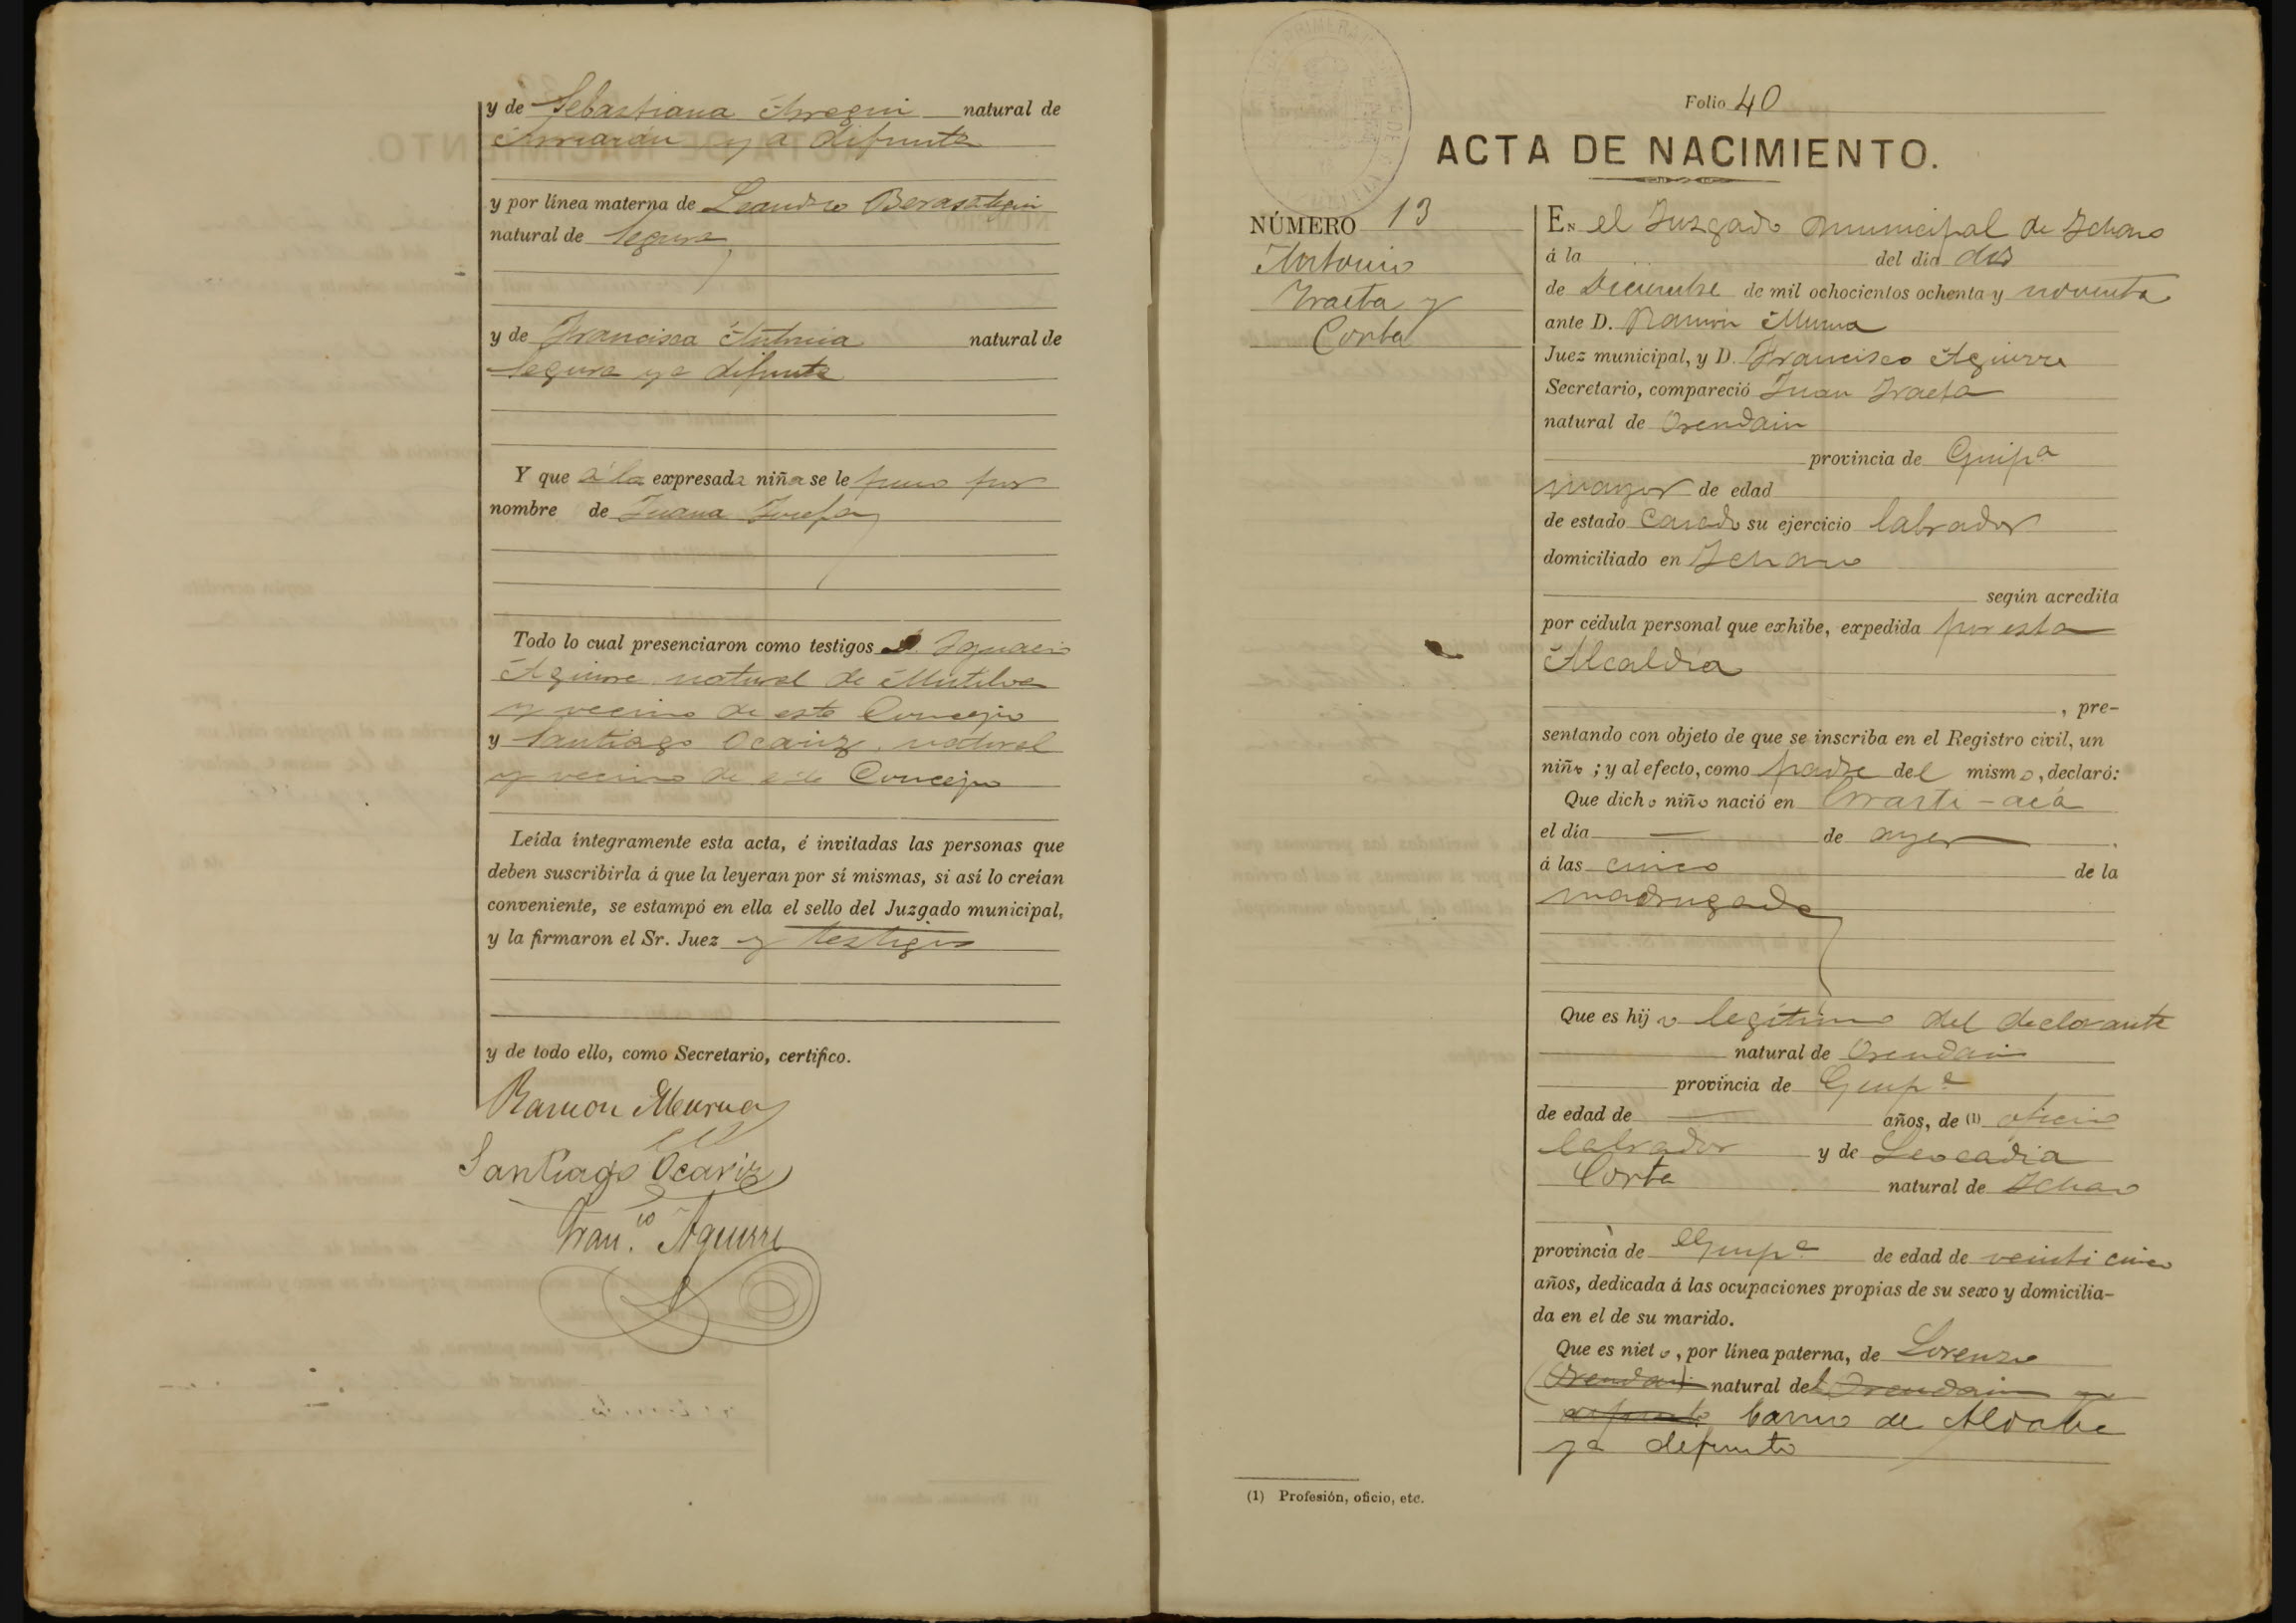 y de Sebastiana Arregui natural de
Arriarán ya difunta
y por línea materna de Leandro Berasategui
natural de Segura
y de Francisca Antonia natural de
Segura ya difunta
Y que á la expresada niña se le puso por
nombre de Juana Josefa
Todo lo cual presenciaron como testigos D. Ignacio
Aguirre natural de Mutiloa
y vecino de este Concejo
y Santiago Ocariz, natural
y vecino de este Concejo
Leída íntegramente esta acta, é invitadas las personas que
deben suscribirla á que la leyeran por sí mismas, si así lo creían
conveniente, se estampó en ella el sello del Juzgado municipal,
y la firmaron el Sr. Juez y testigos
y de todo ello, como Secretario, certifico.
Ramon Murua
Santiago Ocariz
Fran.co Aguirre
Folio 40
ACTA DE NACIMIENTO.
NÚMERO 13
Antonio
Iraeta y
Corta
En el Juzgado municipal de Ichaso
á la del día dos
de Diciembre de mil ochocientos ochenta y noventa
ante D. Ramón Murua
Juez municipal, y D. Francisco Aguirre
Secretario, compareció Juan Iraeta
natural de Orendain
provincia de Guip.a
mayor de edad
de estado Casado su ejercicio labrador
domiciliado en Ichaso
según acredita
por cédula personal que exhibe, expedida por esta
Alcaldía
, pre-
sentando con objeto de que se inscriba en el Registro civil, un
niño ; y al efecto, como padre del mismo, declaró:
Que dicho niño nació en
el día — de ayer
á las cinco de la
madrugada
Que es hijo legítimo del declarante
natural de Orendain
provincia de Guip.a
de edad de — años, de (1) oficio
labrador y de Leocadia
Corta natural de Ichaso
provincia de Guip.a de edad de veinti cinco
años, dedicada á las ocupaciones propias de su sexo y domicilia-
da en el de su marido.
Que es nieto, por línea paterna, de Lorenzo
Orendain natural del Orendain ya
difunto barrio de Aldaba
ya difunto
(1) Profesión, oficio, etc.